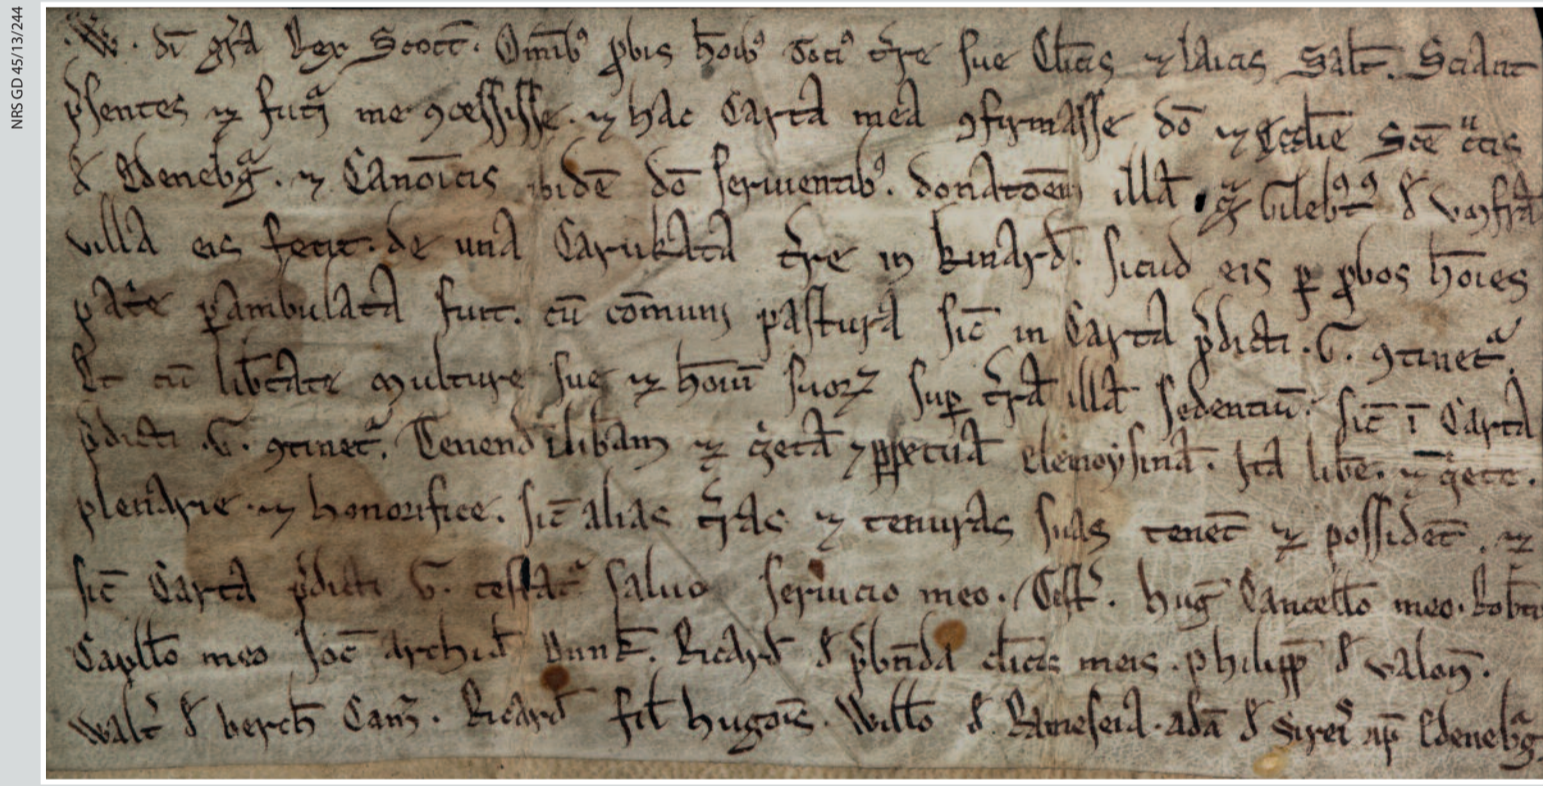 NRS GD 45/13/244
.W. dī gr̃a Rex Scott̄. Om̄ibꝯ ꝓbis hōibꝯ Totiꝯ tr̃re sue Cl̄icis ⁊ laicis Sal̄t. Sciant
p̃sentes ⁊ fut̃i me ꝯcessisse. ⁊ hac Carta mea ꝯfirmasse dō ⁊ Eccl̄ie Sc̄e c͛cis
đ Edenebg̃. ⁊ Canōicis ibidē dō seruientibꝯ. donatōem illā. q̃ Gileb̄tꝯ đ vmfrā
villa eis fecit. de una Carukata tr̃re in kinard̄. sicud eis ꝑ ꝓbos hōies
pat̃e ꝑambulata fuit. cū cōmuni pastura sic̄ in Carta p̃dicti .G. ꝯtinet̃.
Et cū lib̄tate multure sue ⁊ hōiū suoꝝ suꝑ tr̃ā illā sedentiū. sic̄ ī Carta
p̃dicti .G. ꝯtinet̃. Tenend̄ ī lib̄am ⁊ q̃etā ⁊ ꝑpetuā elemoysinā. Ita lib̄e. ⁊ q̃ete.
plenarie. ⁊ honorifice. sic̄ alias tr̃ras ⁊ tenuras suas tenēt ⁊ possidēt. ⁊
sic̄ Carta p̃dicti G. testat̃ saluo seruicio meo. Test̃. hug̃ Cancell̄o meo. Rob̄to
Capll̄o meo Joc̄ archid̄ Dunk̄. Ricard̄ đ p̃bn̄da cl̄icis meis. philipp̄ đ valoñ.
Walt̃ đ berch̄ Cam̃. Ricard̄ fil̄ hugōis. Will̄o đ Rameseia. adā đ sirei͛ ap̄ Edenebg̃.